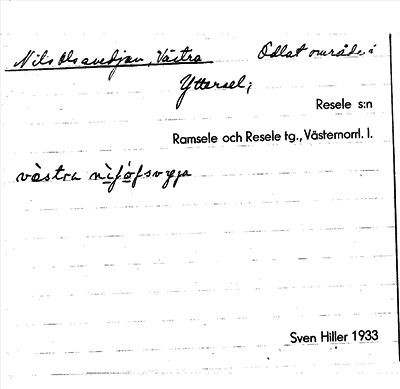 Nils Olsavedjan, Västra Odlat område i
Yttersel;
Resele s:n
Ramsele och Resele tg., Västernorrl. l.
västra
Sven Hiller 1933